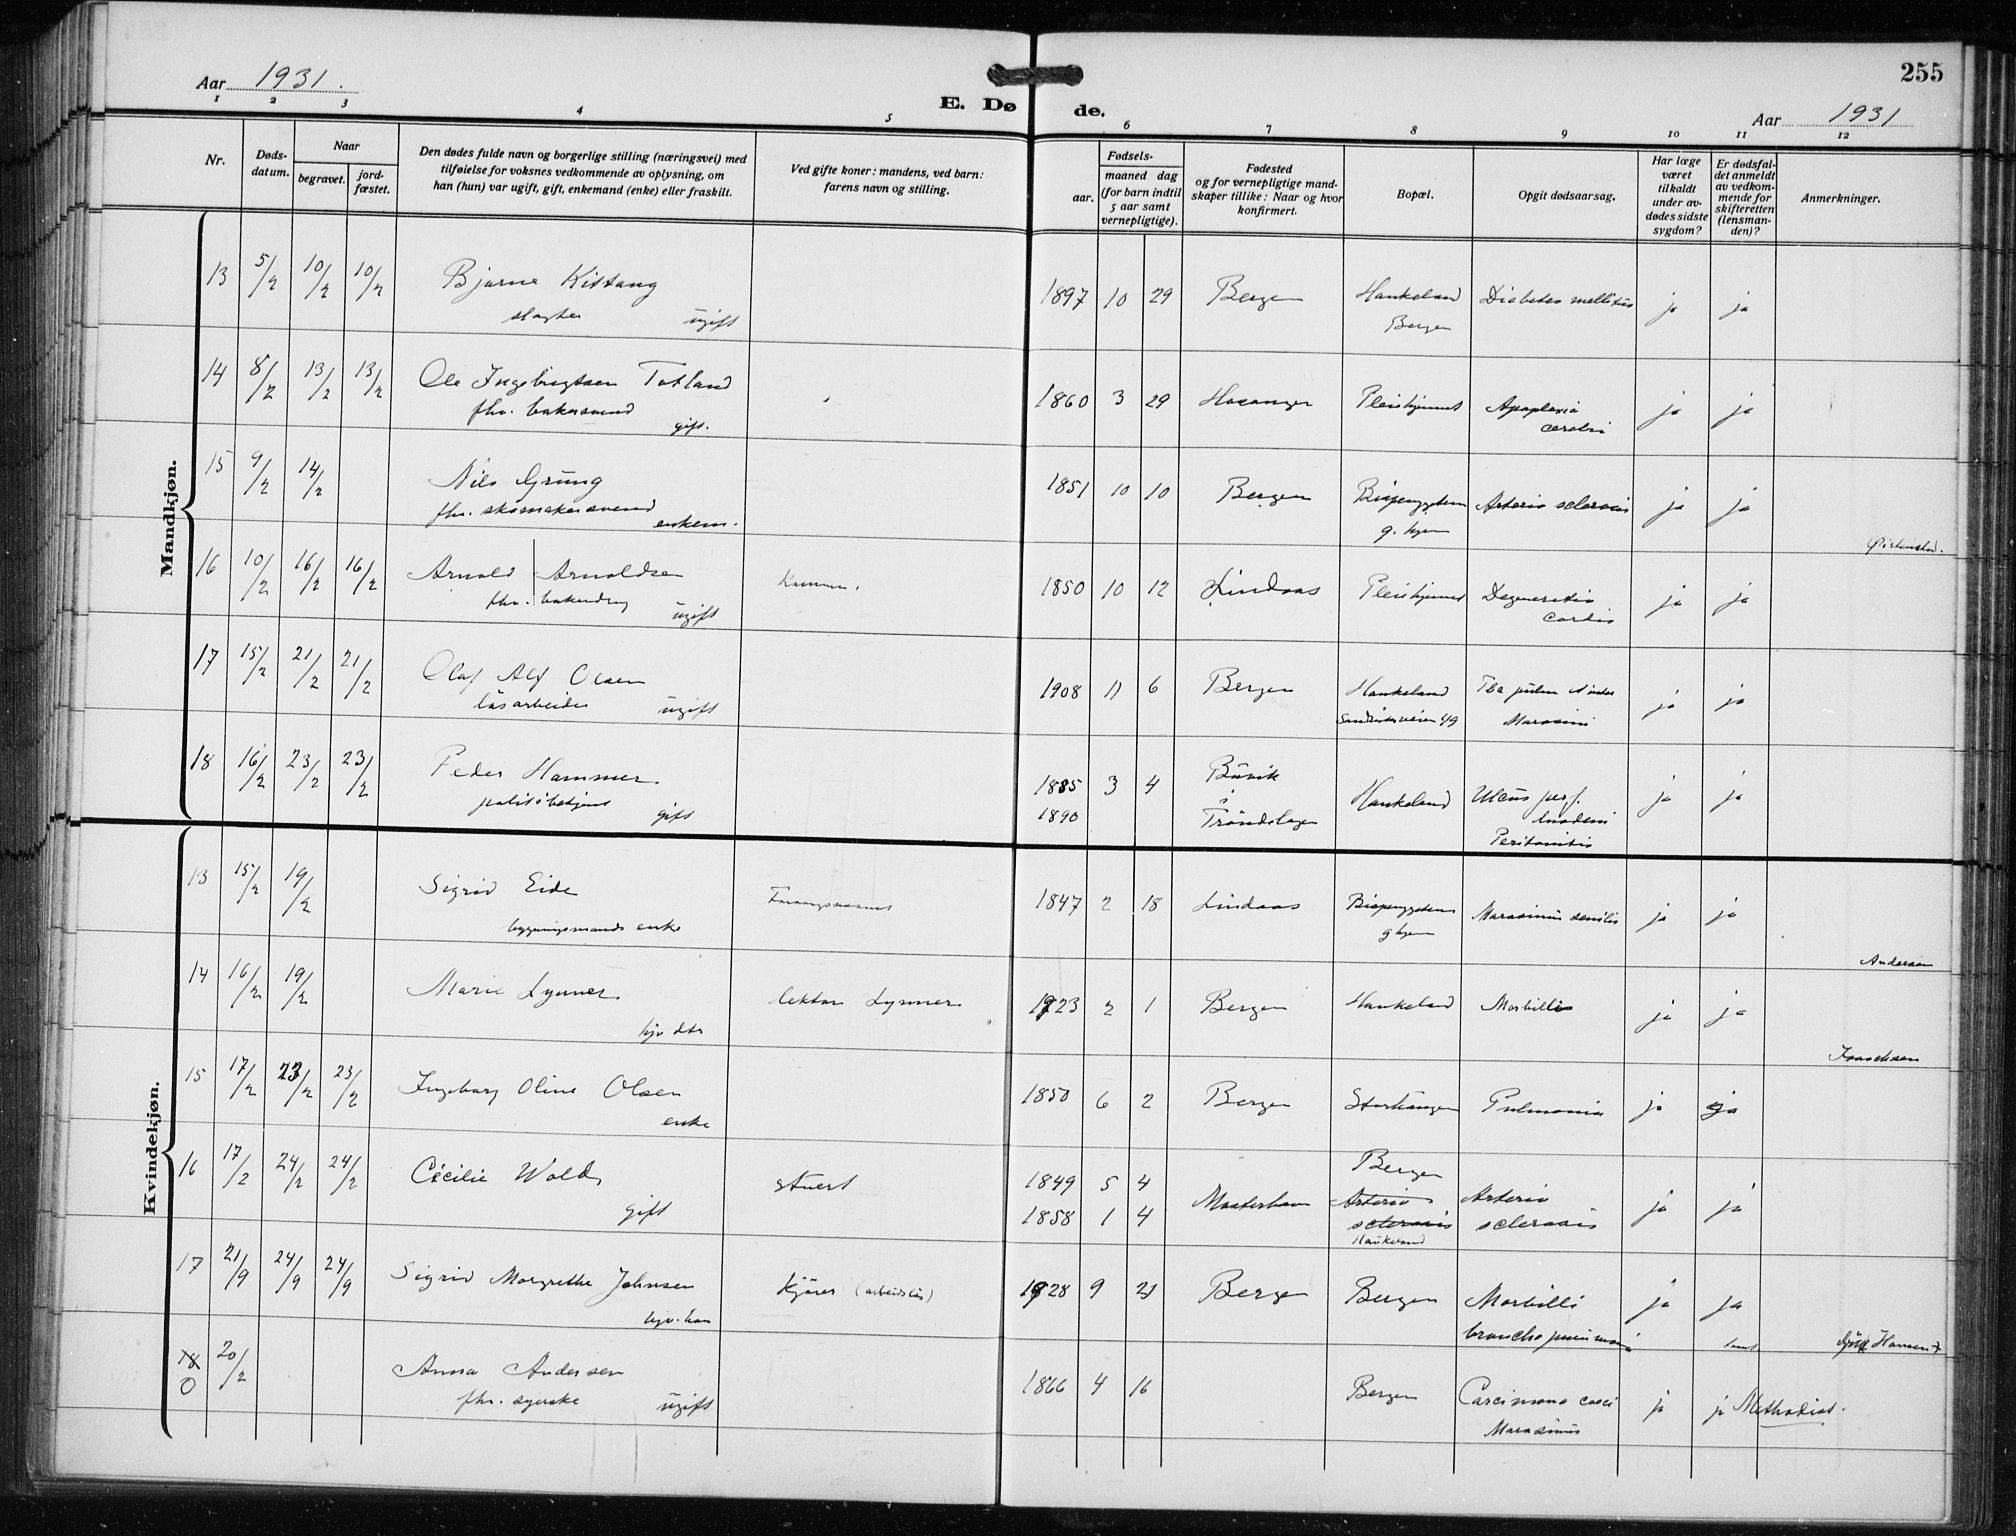 255
Aar 1931.
E. Døde.
Aar 1931
1 2 3 4 5 6 7 8 9 10 11 12
Nr.
Døds-
datum.
Naar
begravet.
jord-
fæstet.
Den dødes fulde navn og borgerlige stilling (næringsvei) med
tilføielse for voksnes vedkommende av oplysning, om
han (hun) var ugift, gift, enkemand (enke) eller fraskilt.
Ved gifte koner: mandens, ved barn:
farens navn og stilling.
Fødsels-
aar.
maaned dag
(for barn indtil
5 aar samt
vernepligtige).
Fødested
og for vernepligtige mand-
skaper tillike: Naar og hvor
konfirmert.
Bopæl.
Opgit dødsaarsag.
Har læge
været
tilkaldt
under av-
dødes sidste
sygdom?
Er dødsfal-
det anmeldt
av vedkom-
mende for
skifteretten
(lensman-
den)?
Anmerkninger.
Mandkjøn.
13 5/2 10/2 10/2 Bjarne Kittang 1897 10 29 Bergen Haukeland Diabetes mellitus ja ja
slagter ugift Bergen
14 8/2 13/2 13/2 Ole Ingebrigtsen Totland 1860 3 29 Hosanger Pleiehjemmet Apoplexia ja ja
fhv. bakersvend gift. cerebri
15 9/2 14/2 Nils Grung 1851 10 10 Bergen Arterio sclerosis ja ja
fhv. skomakersvend enkem. g. hjem
16 10/2 16/2 16/2 Arnold Arnoldsen 1850 10 12 Lindaas Pleiehjemmet Degeneratio ja ja
fhv. bakerdreng ugift cordis
17 15/2 21/2 21/2 Olaf Alf Olsen 1908 11 6 Bergen Haukeland Tbc pulm ja ja
løsarbeider ugift 49 Marasmus
18 16/2 23/2 23/2 Peder Hammer 1885 3 4 Buvik Haukeland Ulcus perf. ja ja
politibetjent gift 1890 Trøndelagen duodeni
Peritonitis
Kvindekjøn.
13 15/2 19/2 Sigrid Eide 1847 2 18 Lindaas Marasmus senilis ja ja
bygningsmands enke g hjem
Andersen
14 16/2 19/2 Marie Lynner lektor Lynner 1923 2 1 Bergen Haukeland Morbilli ja ja
hjv dtr
Isaachsen
15 17/2 23/2 23/2 Ingeborg Oline Olsen 1850 6 2 Bergen Storhaugen ja ja
enke
16 17/2 24/2 24/2 Cecilie Wold stuert 1849 5 4 Bergen
gift 1858 1 4 Mosterhavn Arterio Arterio ja ja
sclerosis sclerosis
Haukeland
17 21/9 24/9 24/9 Sigrid Margrethe Johnsen Kjører (arbeidsløs) 1928 9 21 Bergen Bergen Morbilli ja ja
hjv. barn broncho pneumoni Hansen
18 20/2 Anna Andersen 1866 4 16 Bergen Carcinoma coeci ja ja Methodist.
0 fhv. syerske ugift Marasmus